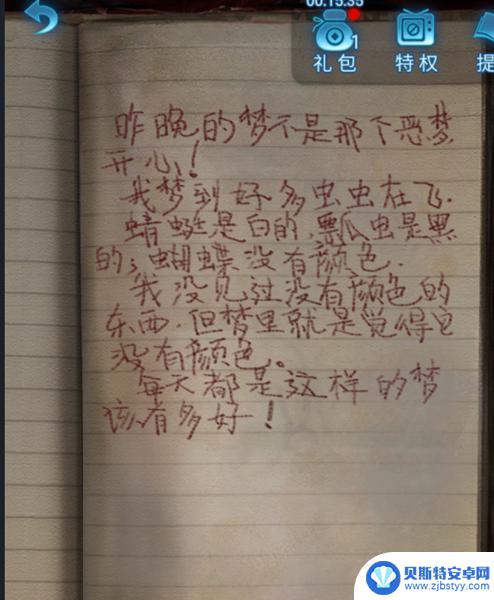 00:15:35
1
礼包
特权
提
昨晚的梦不是那个恶梦
开心！
我梦到好多虫虫在飞.
蜻蜓是白的,瓢虫是黑
的；蝴蝶没有颜色.
我没见过没有颜色的
东西.但梦里就是觉得它
没有颜色。
每天都是这样的梦
该有多好！
贝斯特安卓网
www.zjbstyy.com